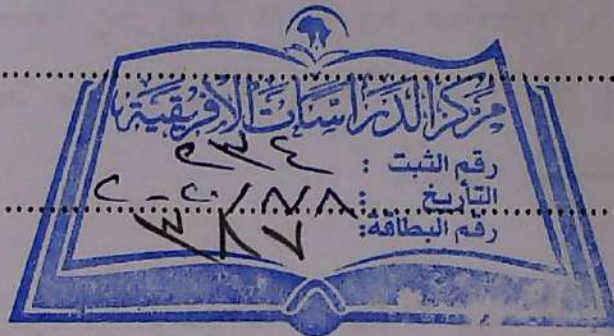 مركز الدراسات الأفريقية
رقم الثبت :
التأريخ :
رقم البطاقة: ٣٨٧